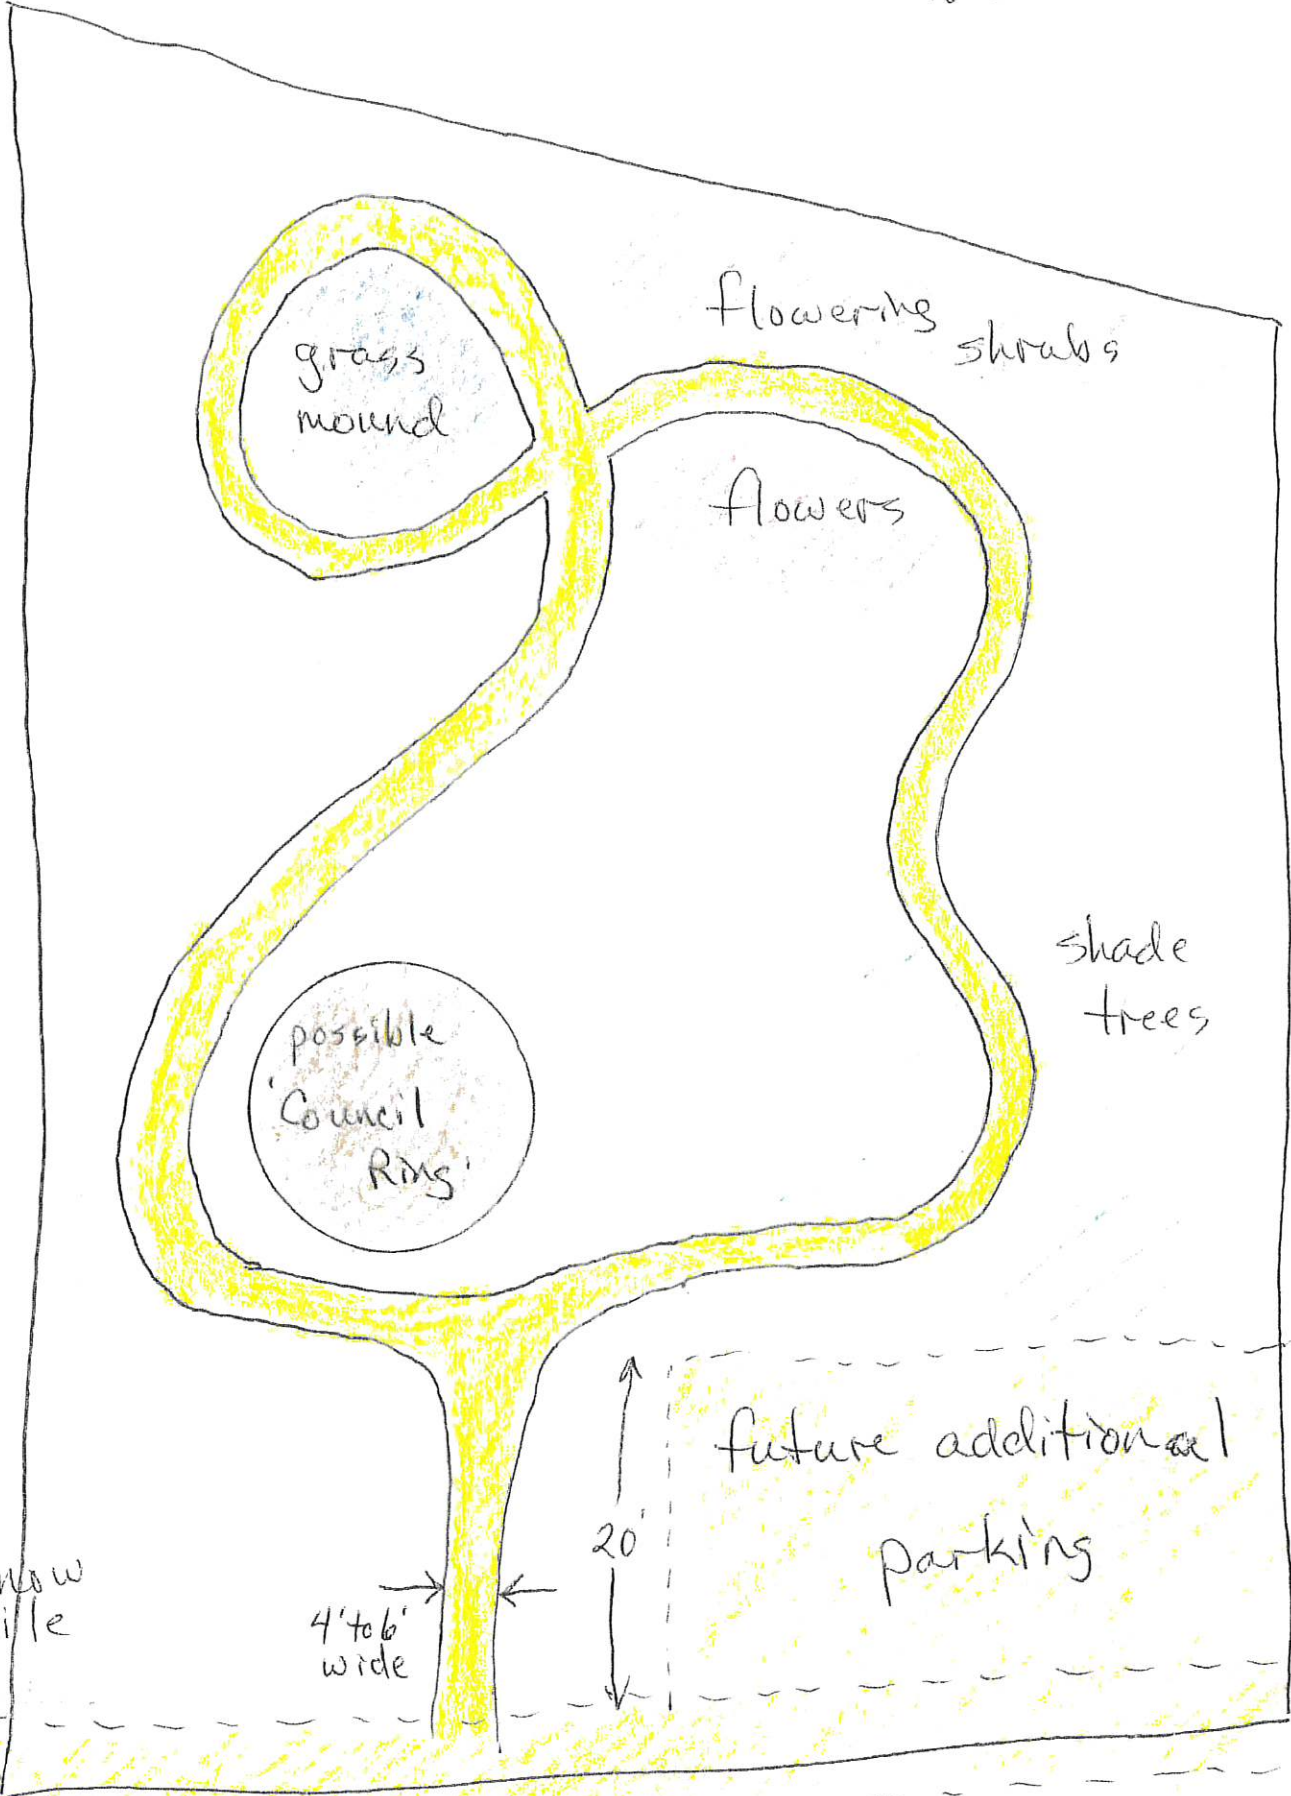 flowering
shrubs
grass
mound
flowers
shade
trees
possible
'Council
Ring'
future additional
parking
20'
4' to 6'
wide